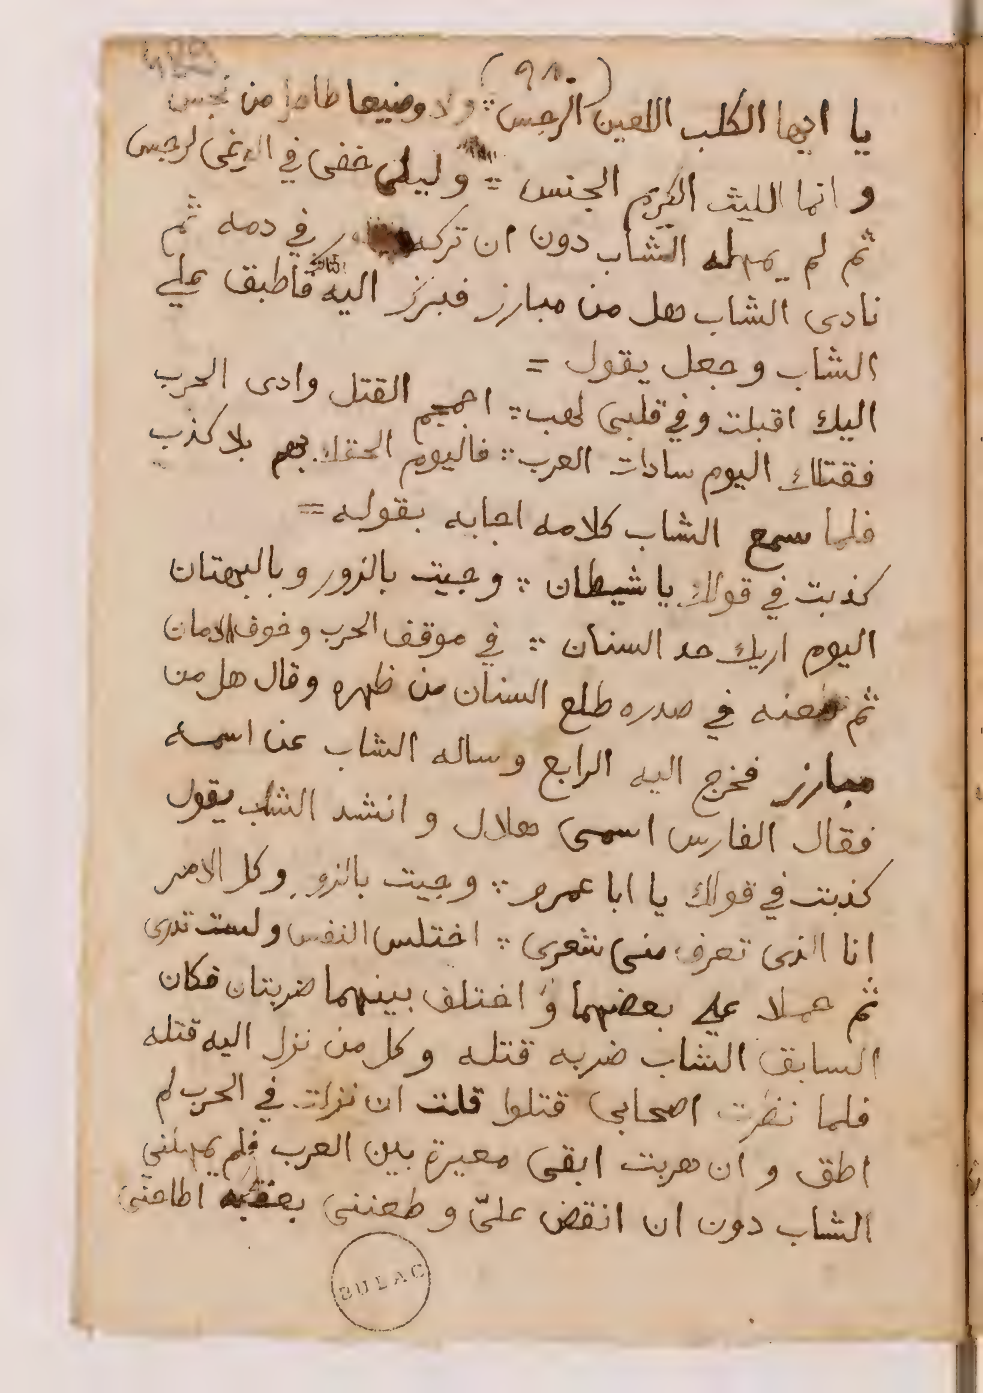 (٩١٠)
يا ايها الكلب اللعين الرجس ؞ ولا وضيعا طاهرا من نجس
و انما الليث الكريم الجنس ؞ و ليلى خفى في الرجس
ثم لم يمهله الشاب دون ان تركه في دمه ثم
نادى الشاب هل من مبارز فبرز اليه الثالث فاطبق على
الشاب و جعل يقول =
اليك اقبلت و في قلبى لهب ؞ القتل وادى الحرب
فقتلك اليوم سادات العرب ؞ فاليوم الحقك بهم بلا كذب
فلما سمع الشاب كلامه اجابه بقوله =
كذبت في قولك يا شيطان ؞ وجيت بالزور و بالبهتان
اليوم اريك حد السنان ؞ في موقف الحرب و خوف الامان
ثم طعنه في صدره طلع السنان من ظهره و قال هل من
مبارز فخرج اليه الرابع و ساله الشاب عن اسمه
فقال الفارس اسمى هلال و انشد الشاب يقول
كذبت في قولك يا ابا عمرو ؞ وجيت بالزور و كل الامر
انا الذى تعرف منى شعرى ؞ اختلس النفس و لست تدرى
ثم حملا على بعضهما و اختلف بينهما ضربتان فكان
السابق الشاب ضربه قتله و كل من نزل اليه قتله
فلما نظرت اصحابى قتلوا قلت ان نزلت في الحرب لم
اطق و ان هربت ابقى معيرة بين العرب فلم يمهلنى
الشاب دون ان انقض علىّ و طعننى اطاحنى
BULAC